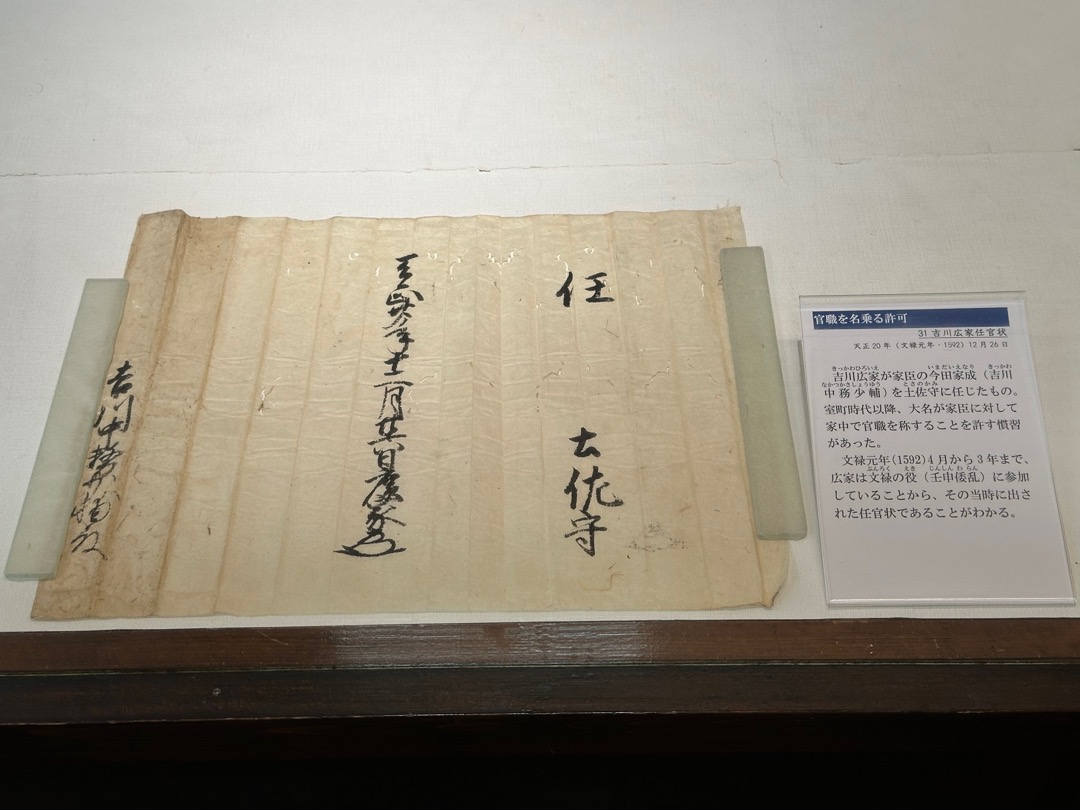 任
土佐守
天正廿年十二月廿六日廣家
吉川中務少輔殿
官職を名乗る許可
31 吉川広家任官状
天正20年（文禄元年・1592）12月26日
吉川広家が家臣の今田家成（吉川
中務少輔）を土佐守に任じたもの。
室町時代以降、大名が家臣に対して
家中で官職を称することを許す慣習
があった。
文禄元年(1592)4月から3年まで、
広家は文禄の役（壬申倭乱）に参加
していることから、その当時に出さ
れた任官状であることがわかる。